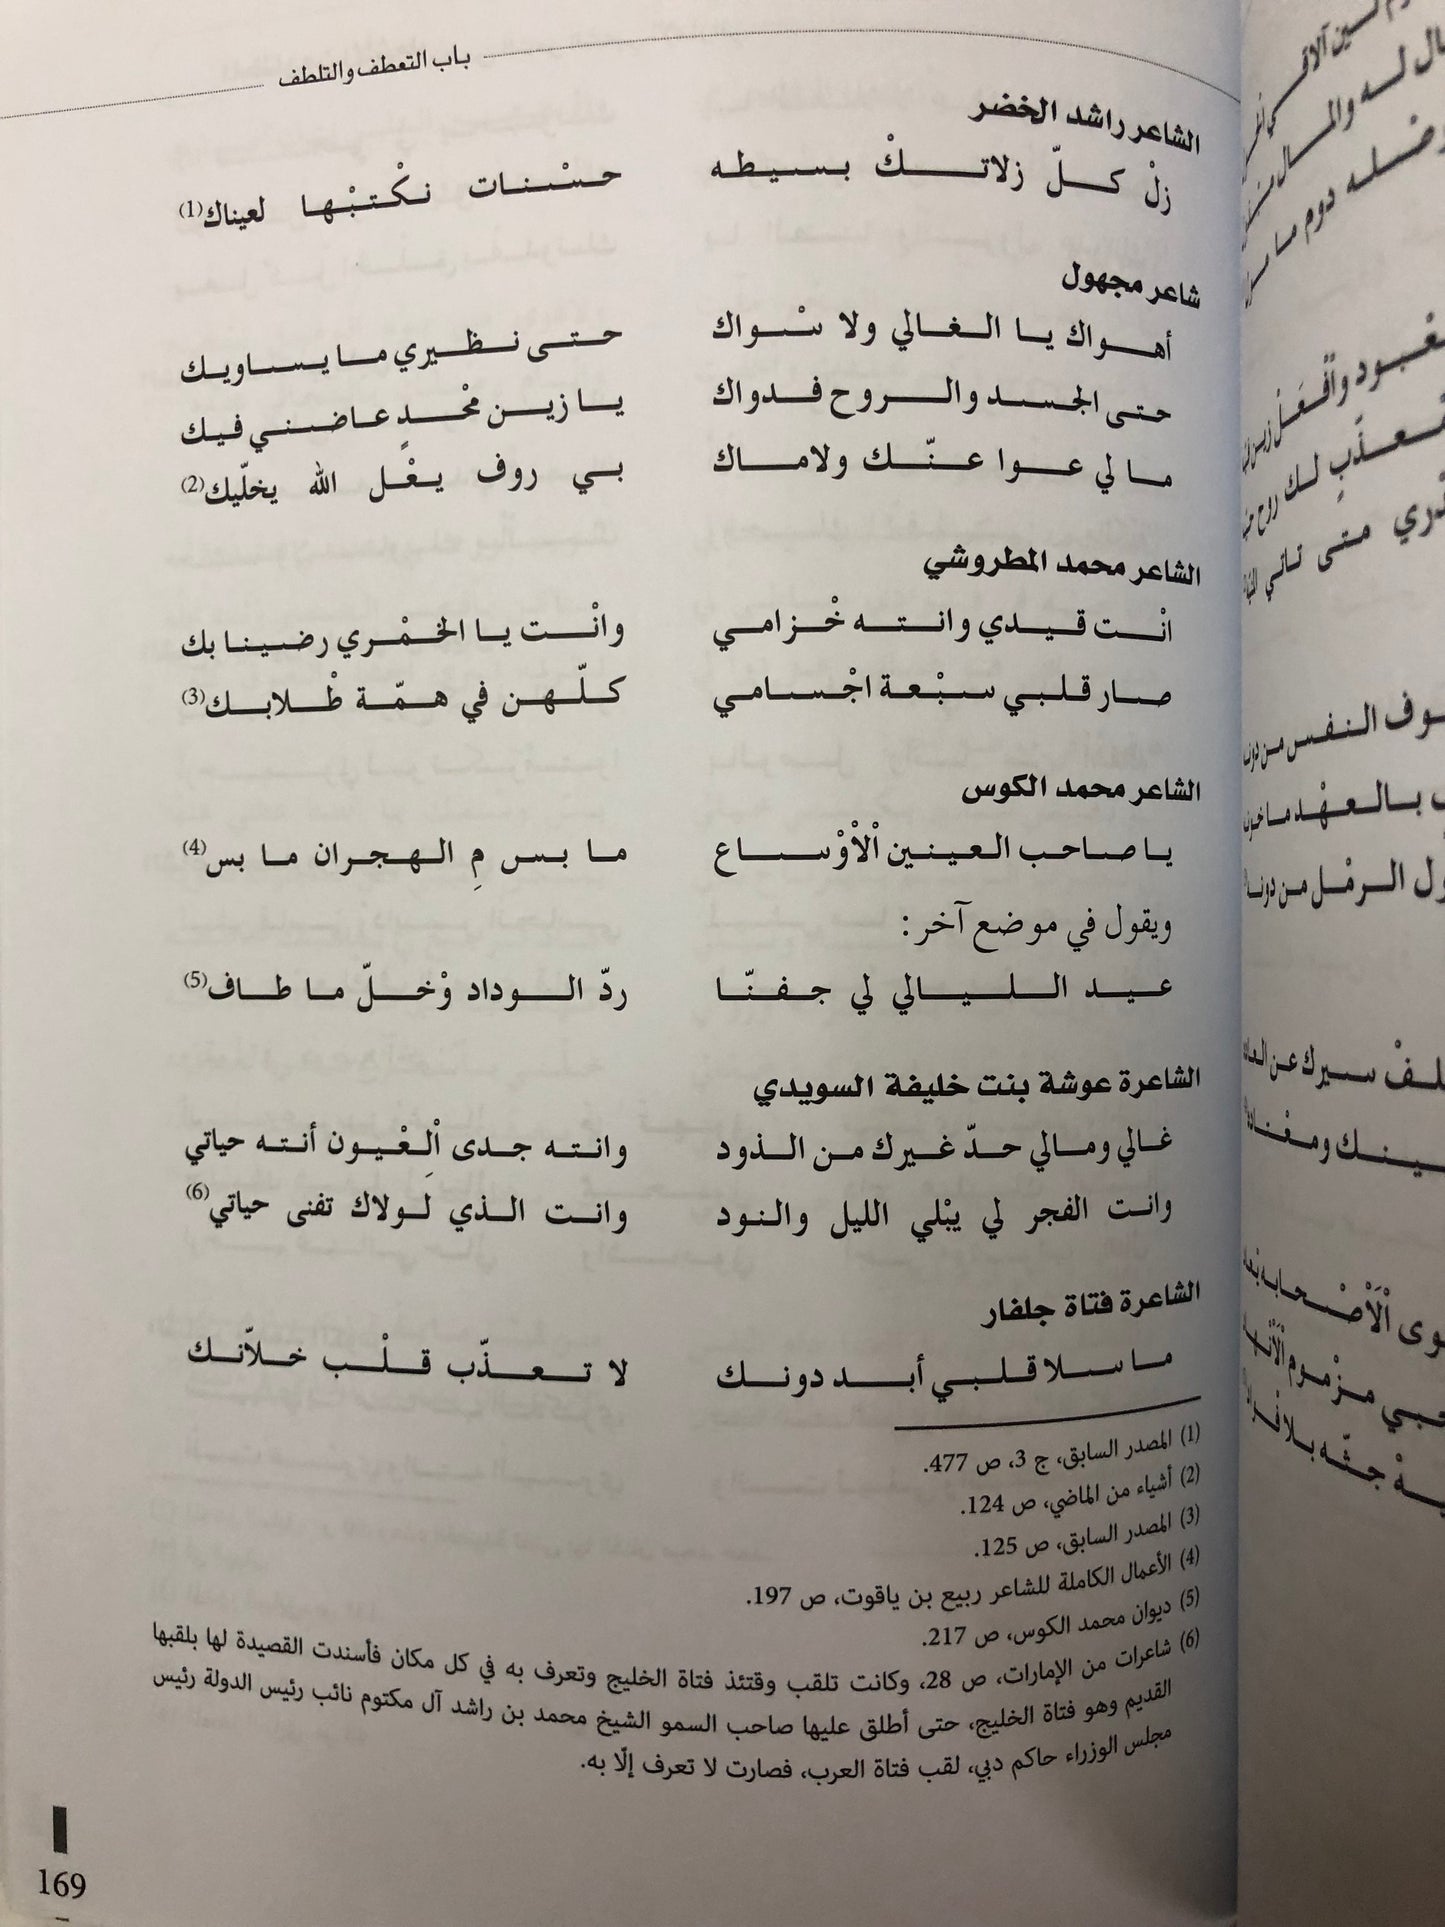 باب التعطف والتلطف
الشاعر راشد الخضر
زلْ كلّ زلاتكْ بسيطه حسْنات نكْتبْها لعيناك(1)
شاعر مجهول
أهواك يا الغالي ولا سْواك حتى نظيري ما يساويك
حتى الجسد والروح فدواك يا زين مْحدٍ عاضني فيك
ما لي عوا عنّك ولاماك بي روف يعْل الله يخلّيك(2)
الشاعر محمد المطروشي
انْت قيدي وانته خْزامي وانْت يا الخمْري رضينا بك
صار قلبي سبْعة اجْسامي كلّهن في همّة طْلابك(3)
الشاعر محمد الكوس
يا صاحب العينين اْلاْوْساع ما بس مِ الهجران ما بس(4)
ويقول في موضع آخر:
عيد الليالي لي جفنّا ردّ الوداد وْخلّ ما طاف(5)
الشاعرة عوشة بنت خليفة السويدي
غالي ومالي حدّ غيرك من الذود وانته جدى اْلِعْيون أنته حياتي
وانت الفجر لي يبْلي الليل والنود وانت الذي لولاك تفنى حياتي(6)
الشاعرة فتاة جلفار
ما سلا قلبي أبد دونك لا تعذّب قلْب خلاّنك
(1) المصدر السابق، ج 3، ص 477.
(2) أشياء من الماضي، ص 124.
(3) المصدر السابق، ص 125.
(4) الأعمال الكاملة للشاعر ربيع بن ياقوت، ص 197.
(5) ديوان محمد الكوس، ص 217.
(6) شاعرات من الإمارات، ص 28، وكانت تلقب وقتئذ فتاة الخليج وتعرف به في كل مكان فأسندت القصيدة لها بلقبها
القديم وهو فتاة الخليج، حتى أطلق عليها صاحب السمو الشيخ محمد بن راشد آل مكتوم نائب رئيس الدولة رئيس
مجلس الوزراء حاكم دبي، لقب فتاة العرب، فصارت لا تعرف إلّا به.
169